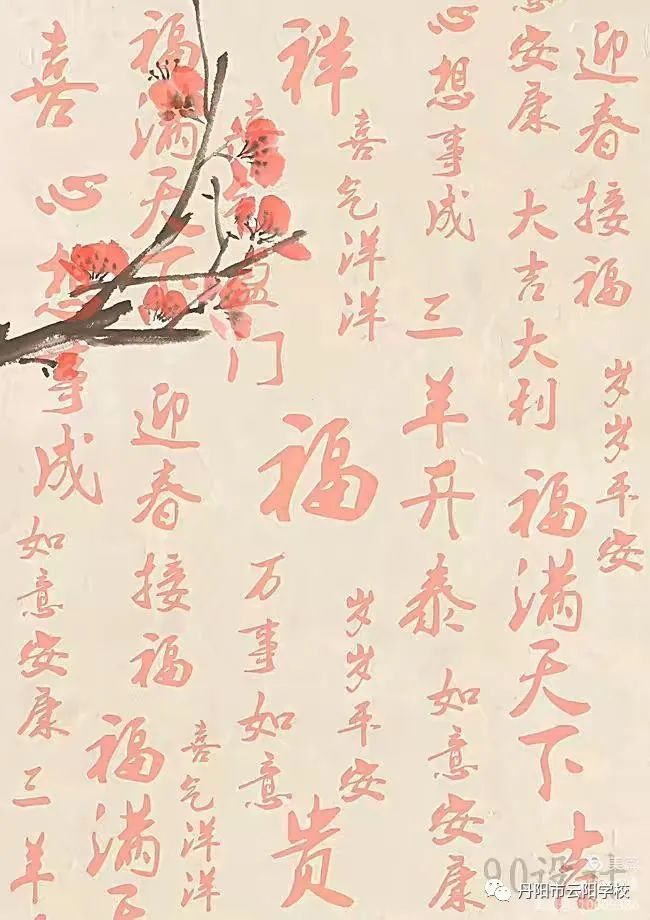 迎春接福
岁岁平安
意安康
大吉大利
福满天下
吉
心想事成
三羊开泰
如意安康
喜气洋洋
岁岁平安
祥
福
贵
喜盈门
万事如意
福满天下
迎春接福
喜气洋洋
福满天
喜
心想事成
如意安康
三羊
90设计
美篇
丹阳市云阳学校